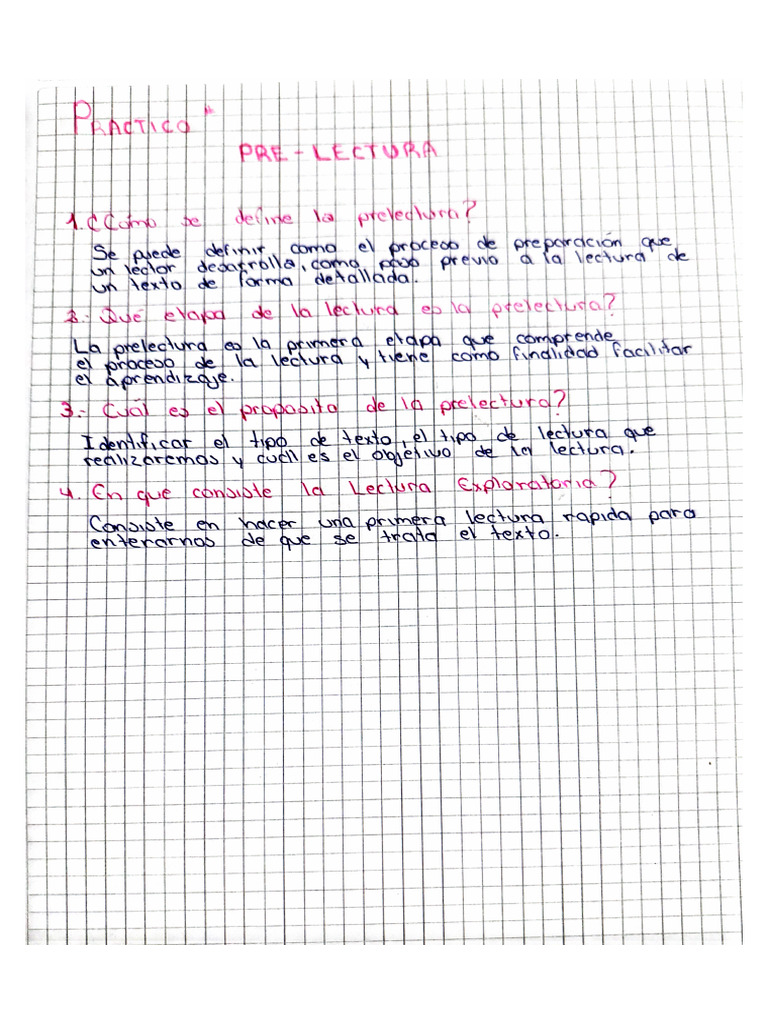 PRACTICO "
PRE - LECTURA
1. ¿Cómo se define la prelectura?
Se puede definir, como el proceso de preparación que
un lector desarrolla, como paso previo a la lectura de
un texto de forma detallada.
2.- Qué etapa de la lectura es la prelectura?
La prelectura es la primera etapa que comprende
el proceso de la lectura y tiene como finalidad facilitar
el aprendizaje.
3.- Cuál es el proposito de la prelectura?
Identificar el tipo de texto, el tipo de lectura que
realizaremos y cuál es el objetivo de la lectura.
4. En que consiste la Lectura Exploratoria?
Consiste en hacer una primera lectura rapida para
enterarnos de que se trata el texto.